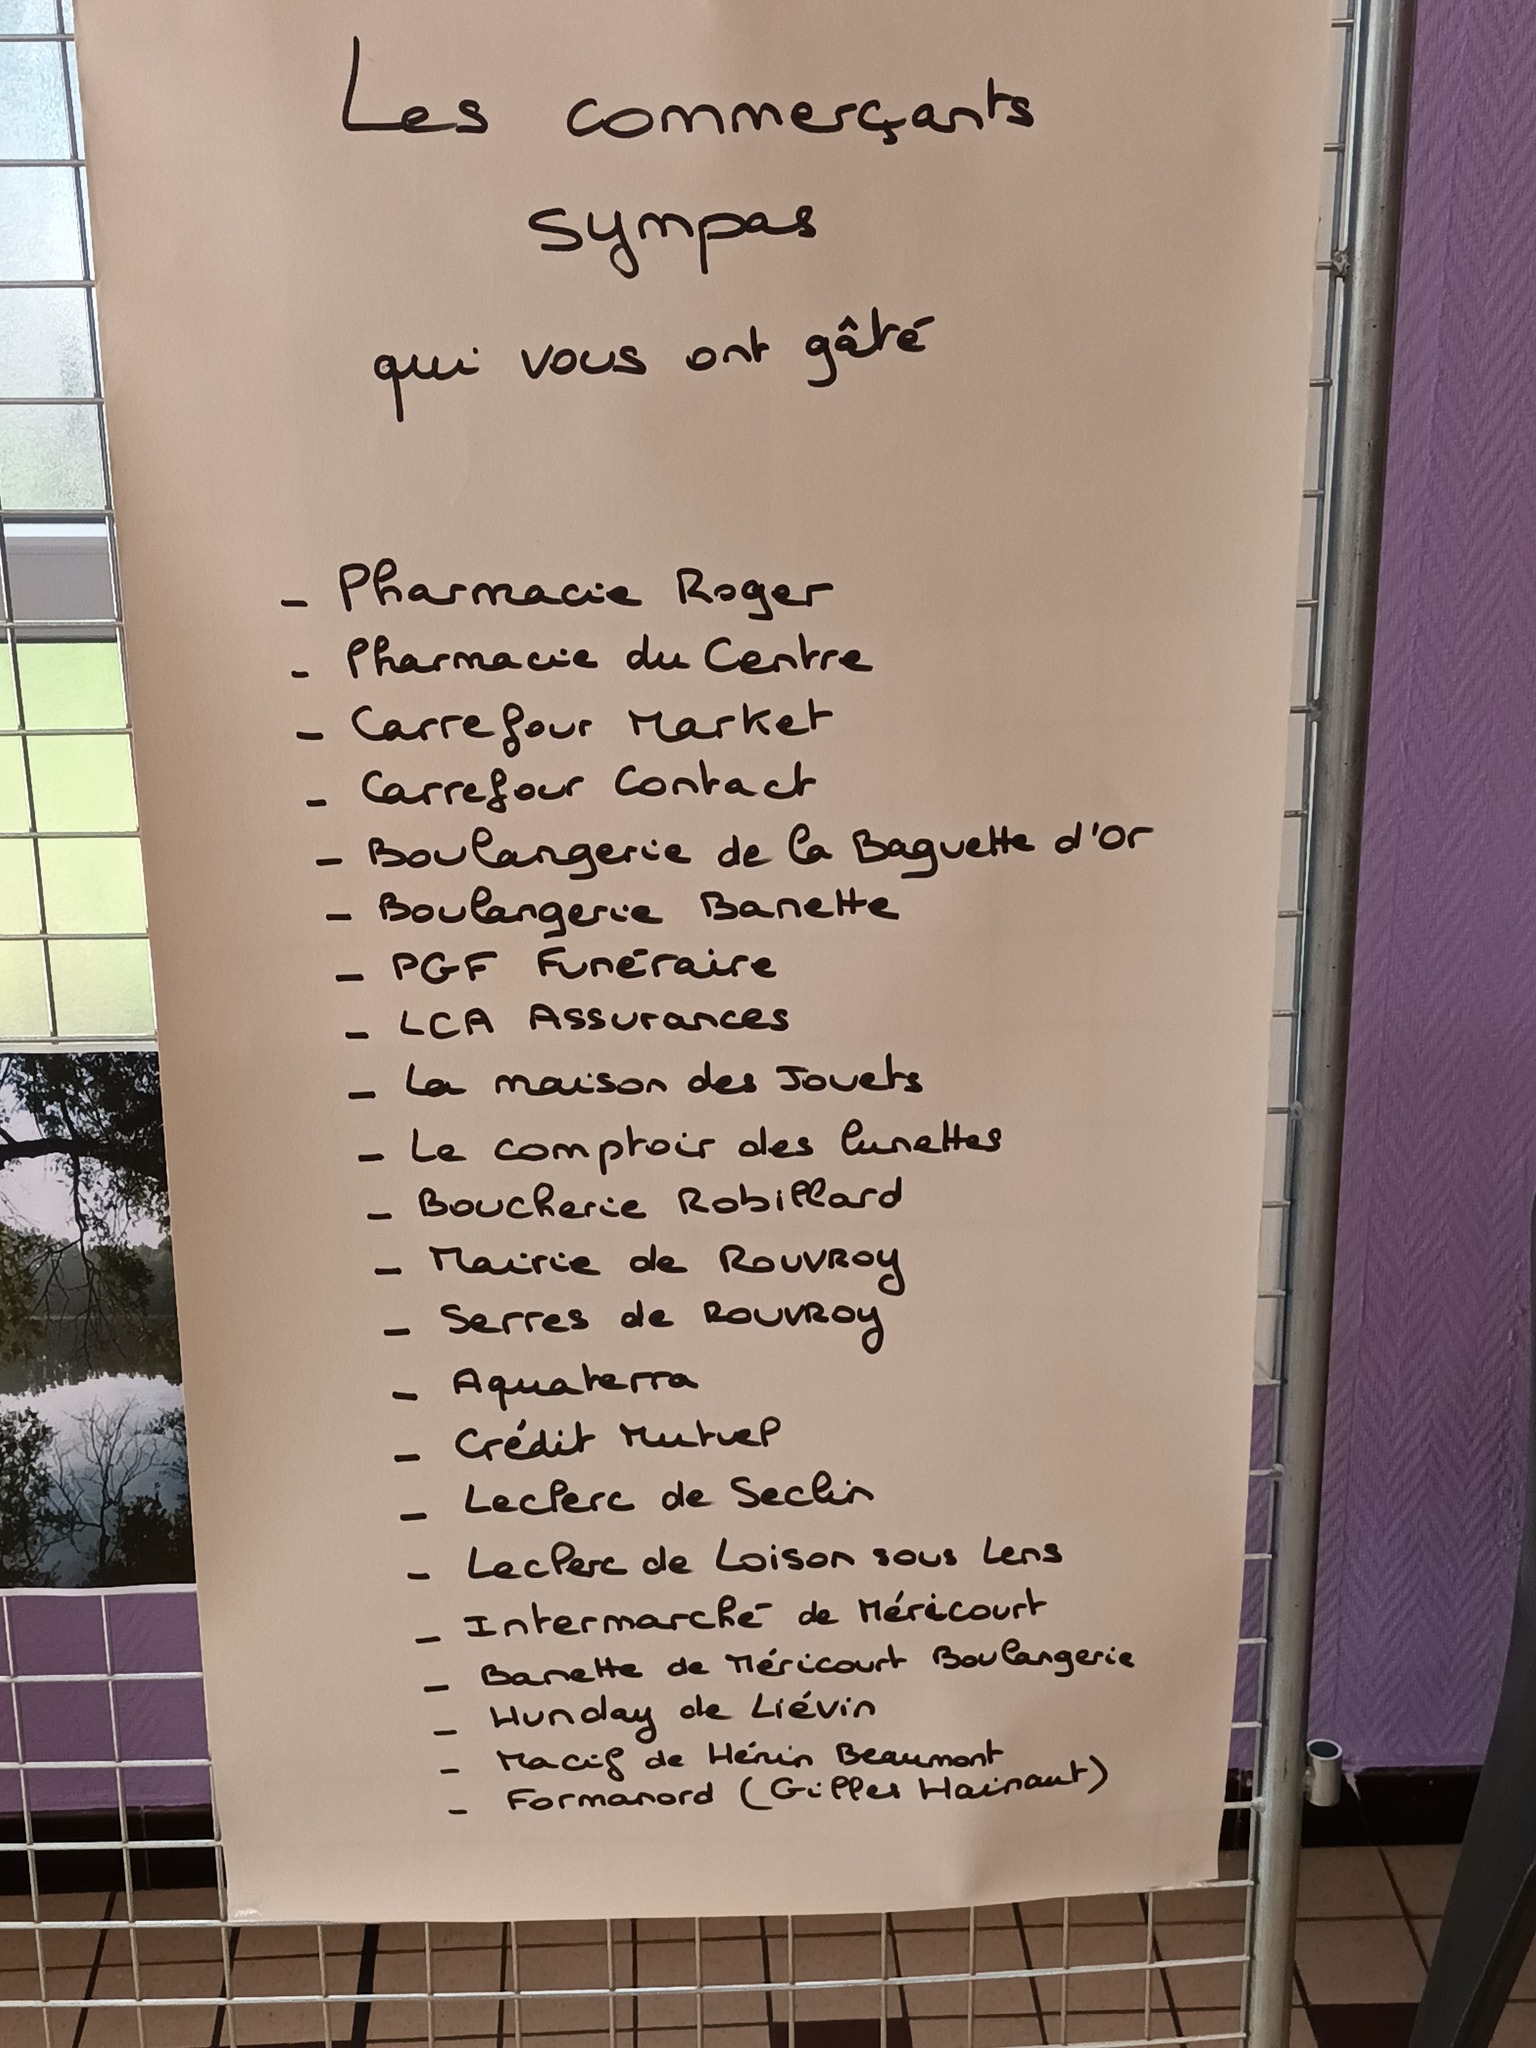 Les commerçants
sympas
qui vous ont gâté
- Pharmacie Roger
- Pharmacie du Centre
- Carrefour Market
- Carrefour Contact
- Boulangerie de la Baguette d'Or
- Boulangerie Banette
- PGF Funéraire
- LCA Assurances
- La maison des Jouets
- Le comptoir des lunettes
- Boucherie Robillard
- Mairie de ROUVROY
- Serres de ROUVROY
- Aquaterra
- Crédit Mutuel
- Leclerc de Seclin
- Leclerc de Loison sous Lens
- Intermarché de Méricourt
- Banette de Méricourt Boulangerie
- Hunday de Liévin
- Macif de Hénin Beaumont
- Formanord (Gilles Hainaut)